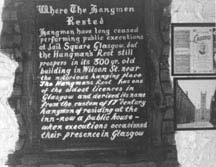 Where The Hangmen
Rested
Hangmen have long ceased
performing public executions
at Jail Square Glasgow, but
the Hangman's Rest still
prospers in its 300 yr. old
building in Wilson St. near
the notorious hanging place
The Hangmans Rest has one
of the oldest licences in
Glasgow and derived its name
from the custom of 17th century
hangmen of residing at the
inn-now a public house-
when executions occasioned
their presence in Glasgow